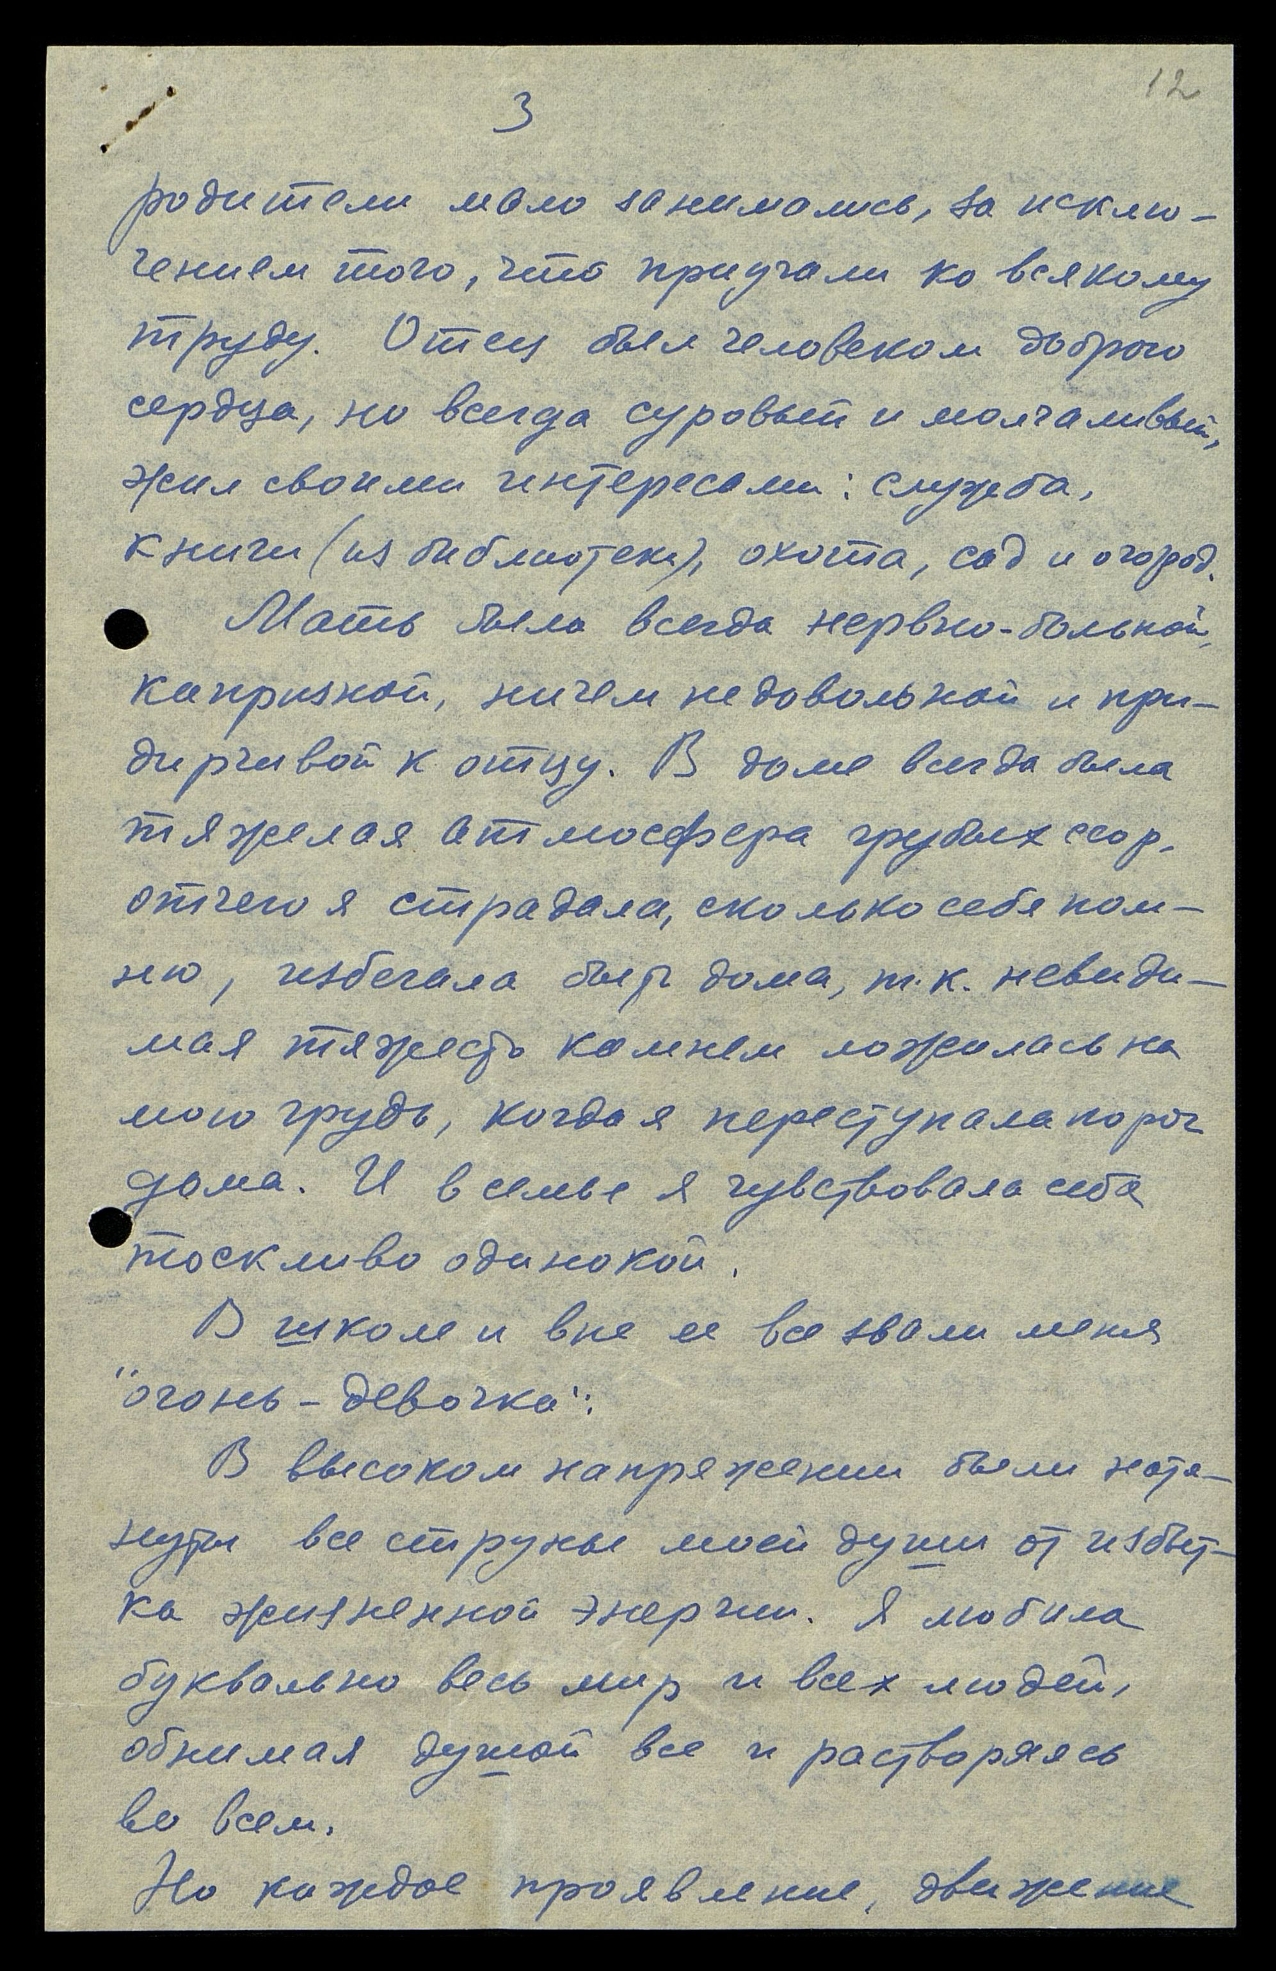 12
3
родители мало занимались, за исклю-
чением того, что приучали ко всякому
труду. Отец был человеком доброго
сердца, но всегда суровый и молчаливый,
жил своими интересами: служба,
книги (из библиотеки), охота, сад и огород.
Мать была всегда нервно-больной,
капризной, ничем недовольной и при-
дирчивой к отцу. В доме всегда была
тяжелая атмосфера грубых ссор,
отчего я страдала, сколько себя пом-
ню, избегала быть дома, т.к. невиди-
мая тяжесть камнем ложилась на
мою грудь, когда я переступала порог
дома. И в семье я чувствовала себя
тоскливо одинокой.
В школе и вне ее все звали меня
"огонь-девочка".
В высоком напряжении были натя-
нуты все струны моей души от избыт-
ка жизненной энергии. Я любила
буквально весь мир и всех людей,
обнимая душой все и растворяясь
во всем.
Но каждое проявление, движение